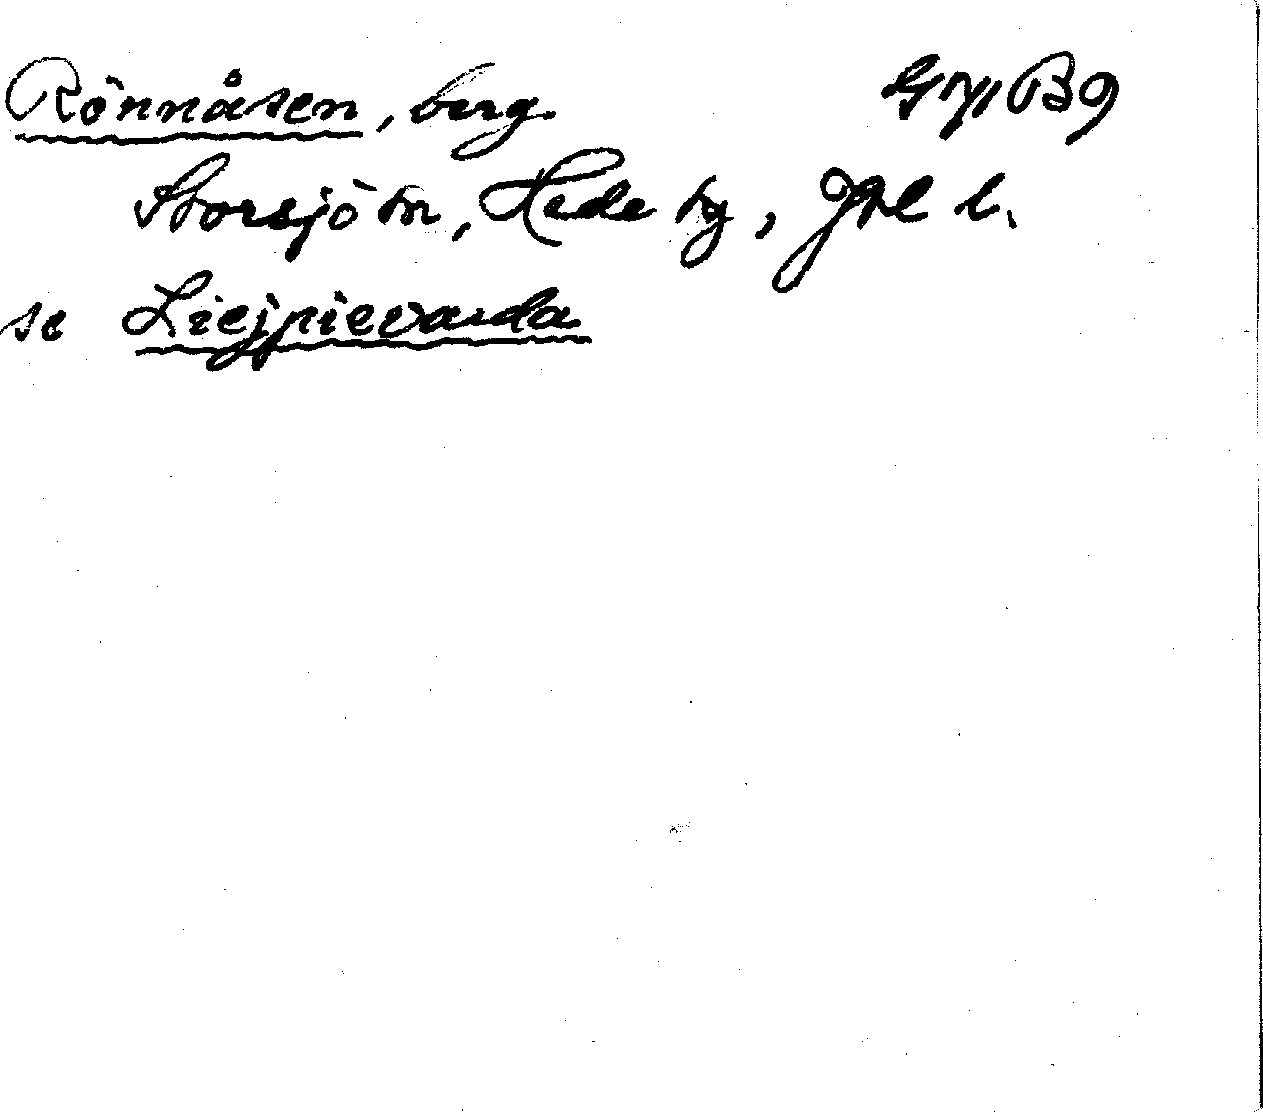 Rönnåsen, berg
Storsjö sn, Hede tg, Jtl l.
se Liejpievarda